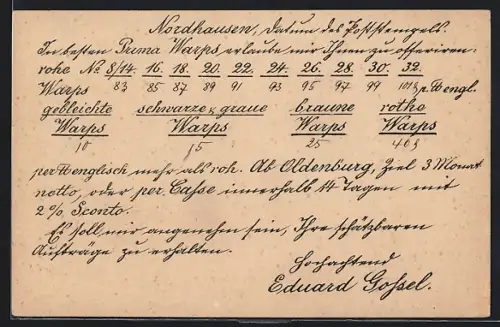 Nordhausen, Datum des Poststempels.
In besten Prima Warps erlaube mir Ihnen zu offeriren:
rohe No 8/14. 16. 18. 20. 22. 24. 26. 28. 30. 32.
Warps 83 85 87 89 91 93 95 97 99 101 ₰ p. ℔ engl.
gebleichte schwarze & graue braune rothe
Warps Warps Warps Warps
10 15 25 40 ₰
per ℔ englisch mehr als roh. Ab Oldenburg, Ziel 3 Monat
netto, oder per Casse innerhalb 14 Tagen mit
2% Sconto.
Es soll mir angenehm sein, Ihre schätzbaren
Aufträge zu erhalten.
Hochachtend
Eduard Gossel.